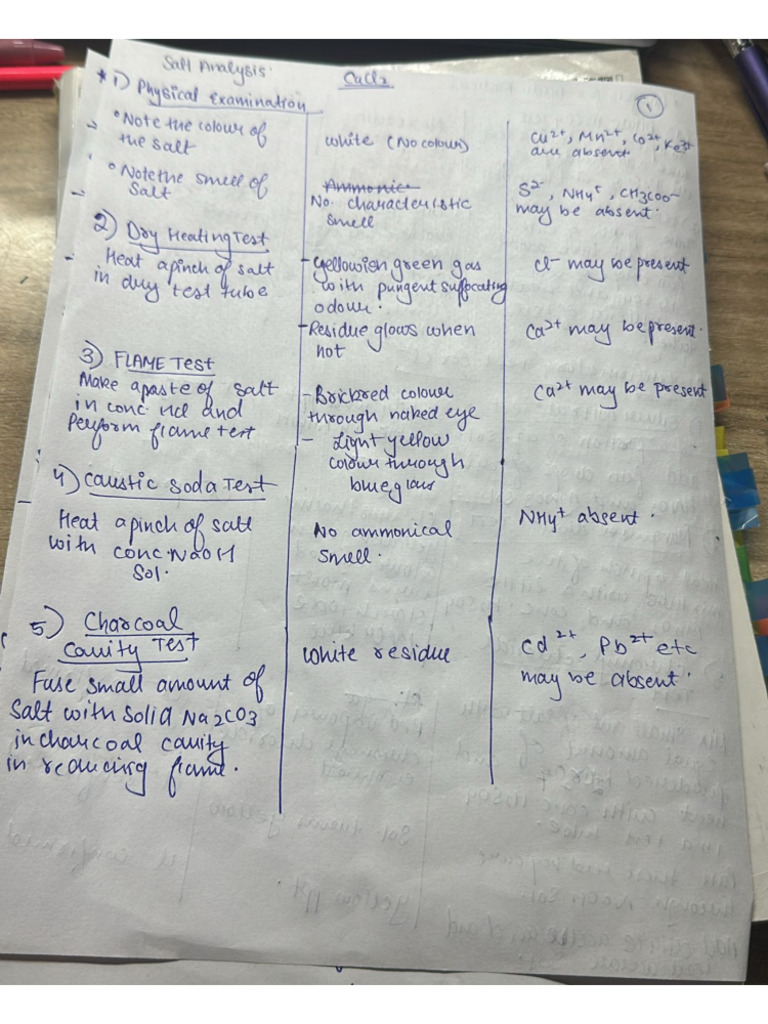 Salt Analysis.
CaCl2
1
* 1) Physical Examination
• Note the colour of
the salt
White (No colour)
Cu2+, Mn2+, Co2+, Fe3+
are absent.
• Note the smell of
salt
Ammonic
No. characteristic
smell
S2-, NH4+, CH3COO-
may be absent.
2) Dry Heating Test
Heat a pinch of salt
in dry test tube
- Yellowish green gas
with pungent suffocating
odour.
Cl- may be present
- Residue glows when
hot
Ca2+ may be present.
3) FLAME TEST
Make a paste of salt
in conc HCl and
Perform flame test
- Brickred colour
through naked eye
- Light yellow
colour through
blue glass
Ca2+ may be present
4) Caustic Soda Test
Heat a pinch of salt
with conc. NaOH
Sol.
No ammonical
smell.
NH4+ absent.
5) Charcoal
Cavity Test
Fuse small amount of
salt with solid Na2CO3
in charcoal cavity
in reducing flame.
White residue
Cd2+, Pb2+ etc
may be absent.